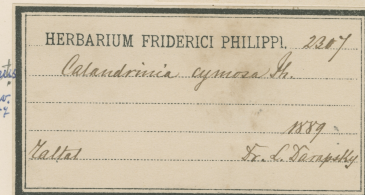 HERBARIUM FRIDERICI PHILIPPI. 2207
Calandrinia cymosa Ph.
1889
Taltal Dr. L. Darapsky